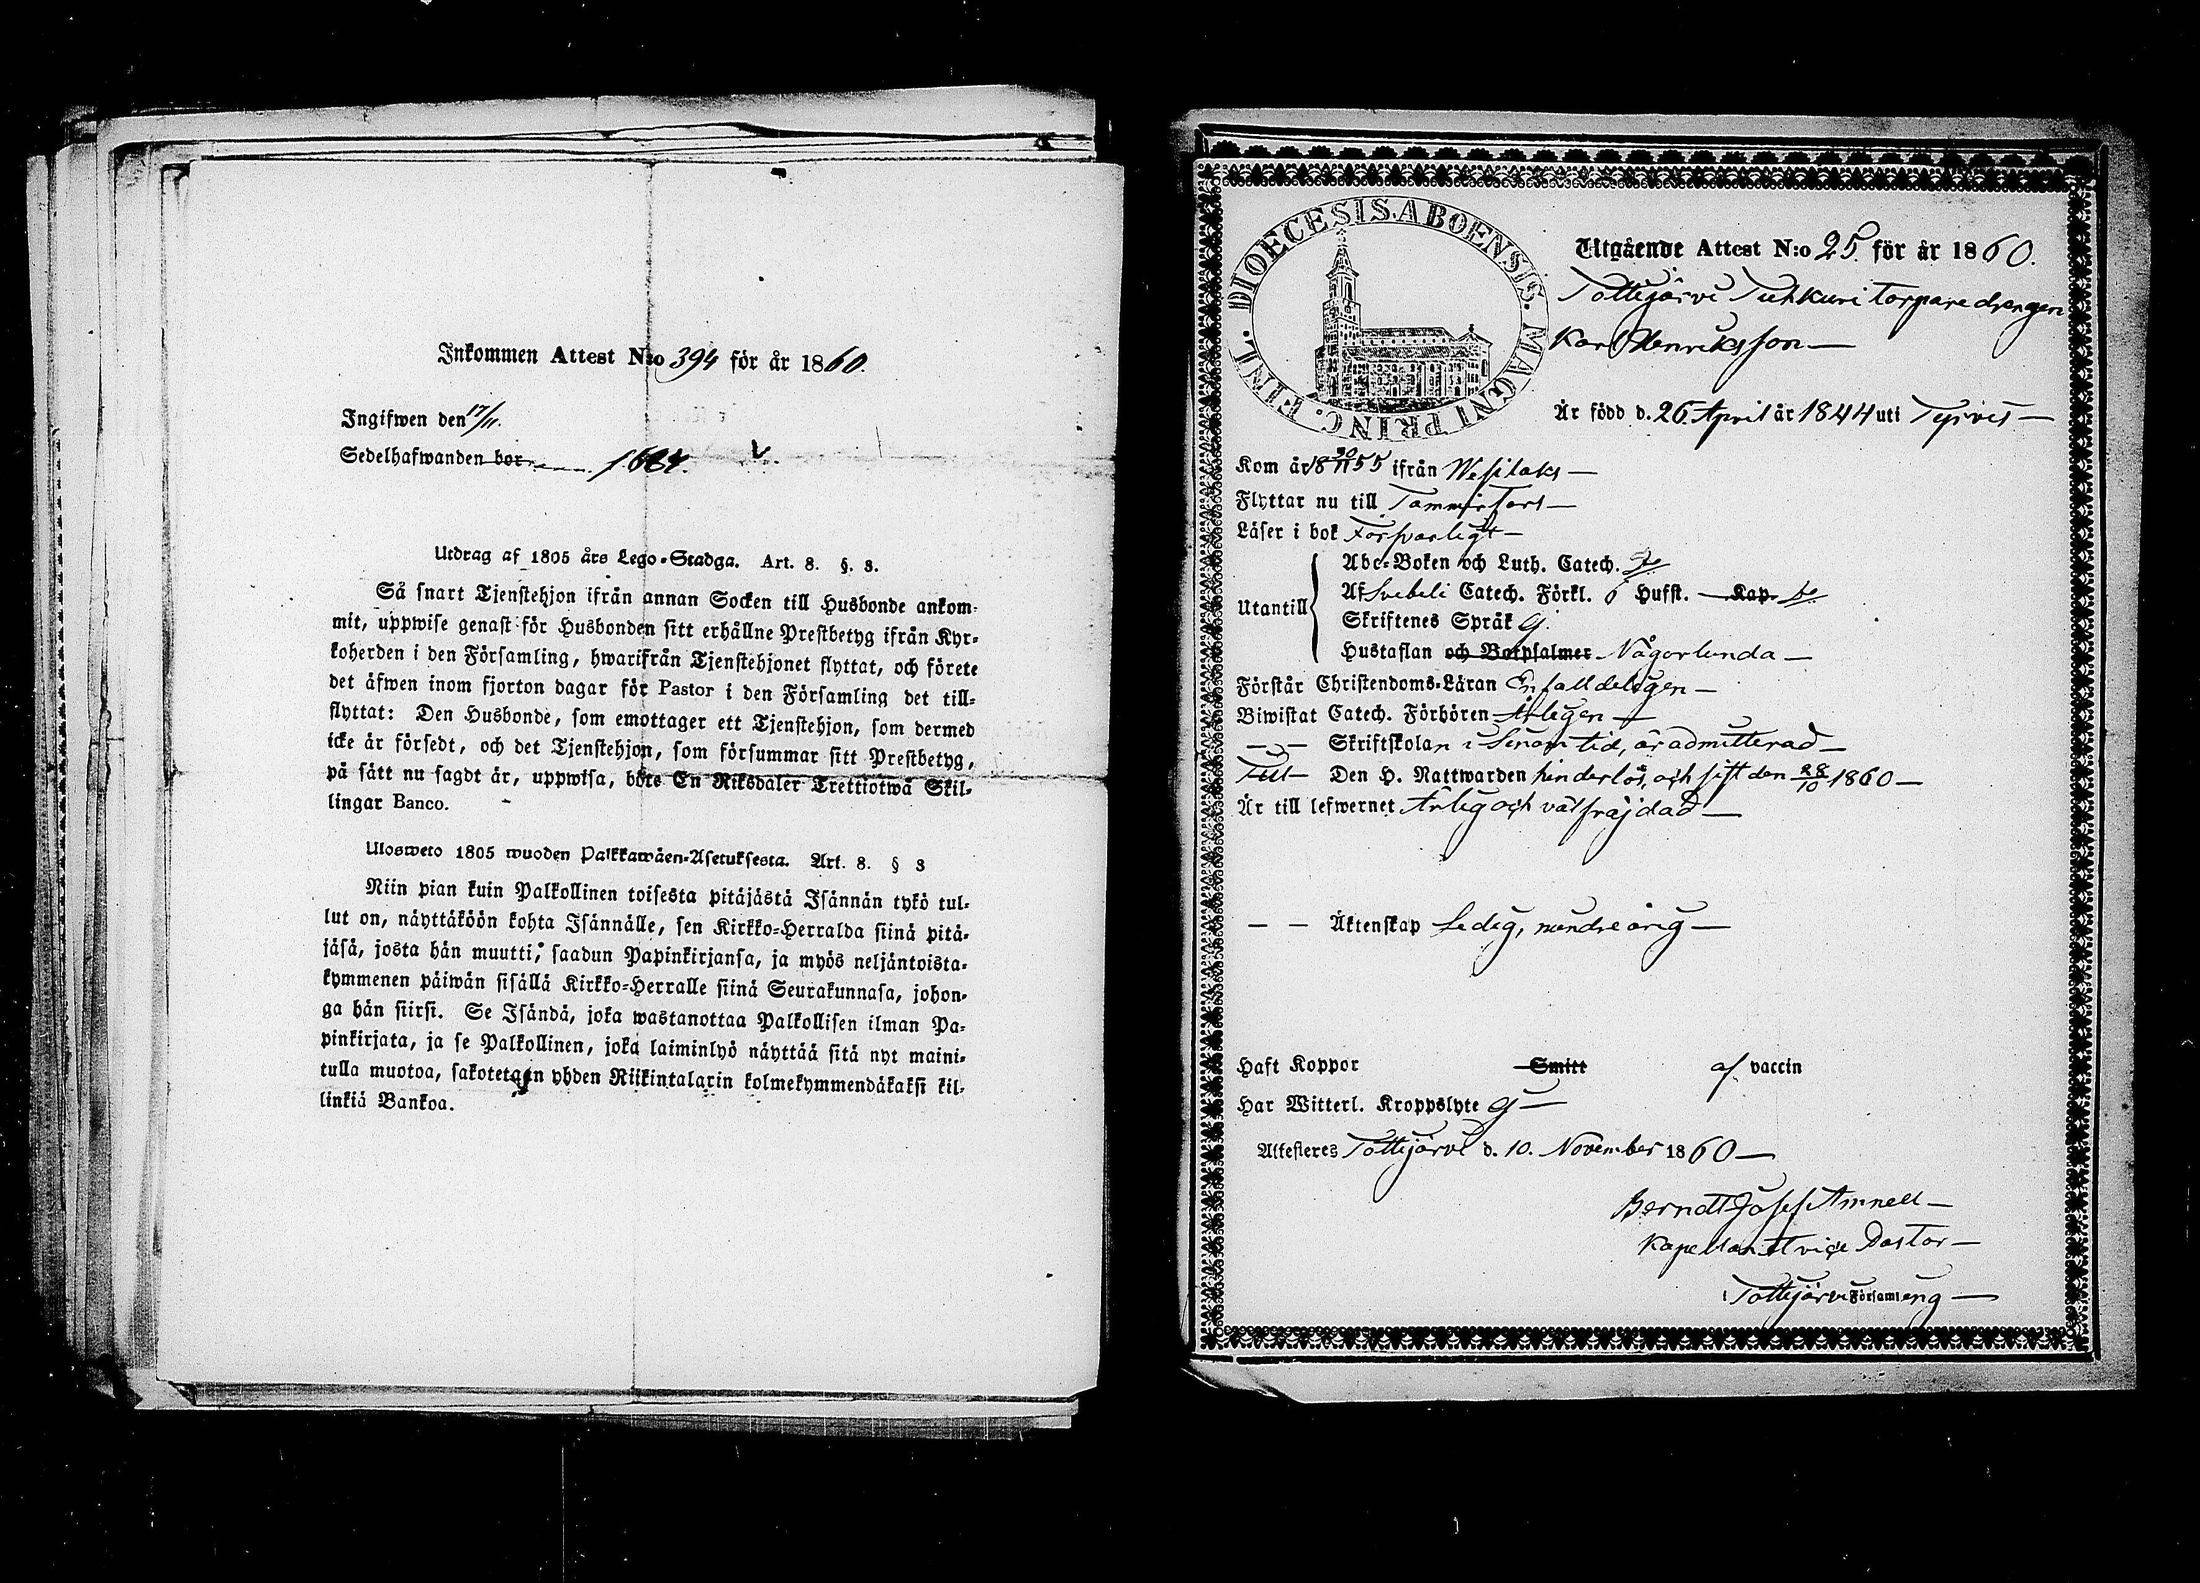 Inkommen Attest N:o 394 för år 1860.
Ingifwen den 17/11.
Sedelhafwanden bor 1624.
Utdrag af 1805 års Lego-Stadga. Art. 8. §. 3.
Så snart Tjenstehjon ifrån annan Socken till Husbonde ankom-
mit, uppwise genast för Husbonden sitt erhållne Prestbetyg ifrån Kyr-
koherden i den Församling, hwarifrån Tjenstehjonet flyttat, och förete
det äfwen inom fjorton dagar för Pastor i den Församling det till-
flyttat: Den Husbonde, som emottager ett Tjenstehjon, som dermed
icke är försedt, och det Tjenstehjon, som försummar sitt Prestbetyg,
på sätt nu sagdt är, uppwisa, böte En Riksdaler Trettiotwå Skil-
lingar Banco.
Ulosweto 1805 wuoden Palkkawäen-Asetuksesta. Art. 8. § 3
Niin pian kuin Palkollinen toisesta pitäjästä Isännän tykö tul-
lut on, näyttäköön kohta Isännälle, sen Kirkko-Herralda siinä pitä-
jäsä, josta hän muutti, saadun Papinkirjansa, ja myös neljäntoista-
kymmenen päiwän sisällä Kirkko-Herralle siinä Seurakunnasa, johon-
ga hän siirsi. Se Isändä, joka wastanottaa Palkollisen ilman Pa-
pinkirjata, ja se Palkollinen, joka laiminlyö näyttää sitä nyt maini-
tulla muotoa, sakotetaan yhden Riikintalarin kolmekymmendäkaksi kil-
linkiä Bankoa.
DIOECESIS. ABOENSIS. MAGNI PRINC. FINL.
Utgående Attest N:o 25. för år 1860.
Tottijärvi Tuhkuri torpare drängen
Karl Henriksson
Är född d. 26 April år 1844 uti Tyrvis
Kom år 18 30/11 55 ifrån Wesilaks
Flyttar nu till Tammerfors
Läser i bok Försvarligt
Utantill
Abc-Boken och Luth. Catech.
Af Svebeli Catech. Förkl. 6 Hufst. Kap.
Skriftenes Språk ej.
Hustaflan och Botpsalmer Någorlunda
Förstår Christendoms-Läran Enfalldeligen
Biwistat Catech. Förhören Årligen
— — Skriftskolan i sinom tid, är admitterad
Till Den H. Nattwarden hinderlös, och sist den 28/10 1860
Är till lefwernet Ärlig och välfräjdad
— — Äktenskap Ledig, mindreårig
Haft Koppor Smitt af vaccin
Har Witterl. Kroppslyte ej
Attesteres Tottijärvi d. 10. November 1860
Berndt Josef Amnell
Kapellan & vice Pastor
i Tottijärvi Församling